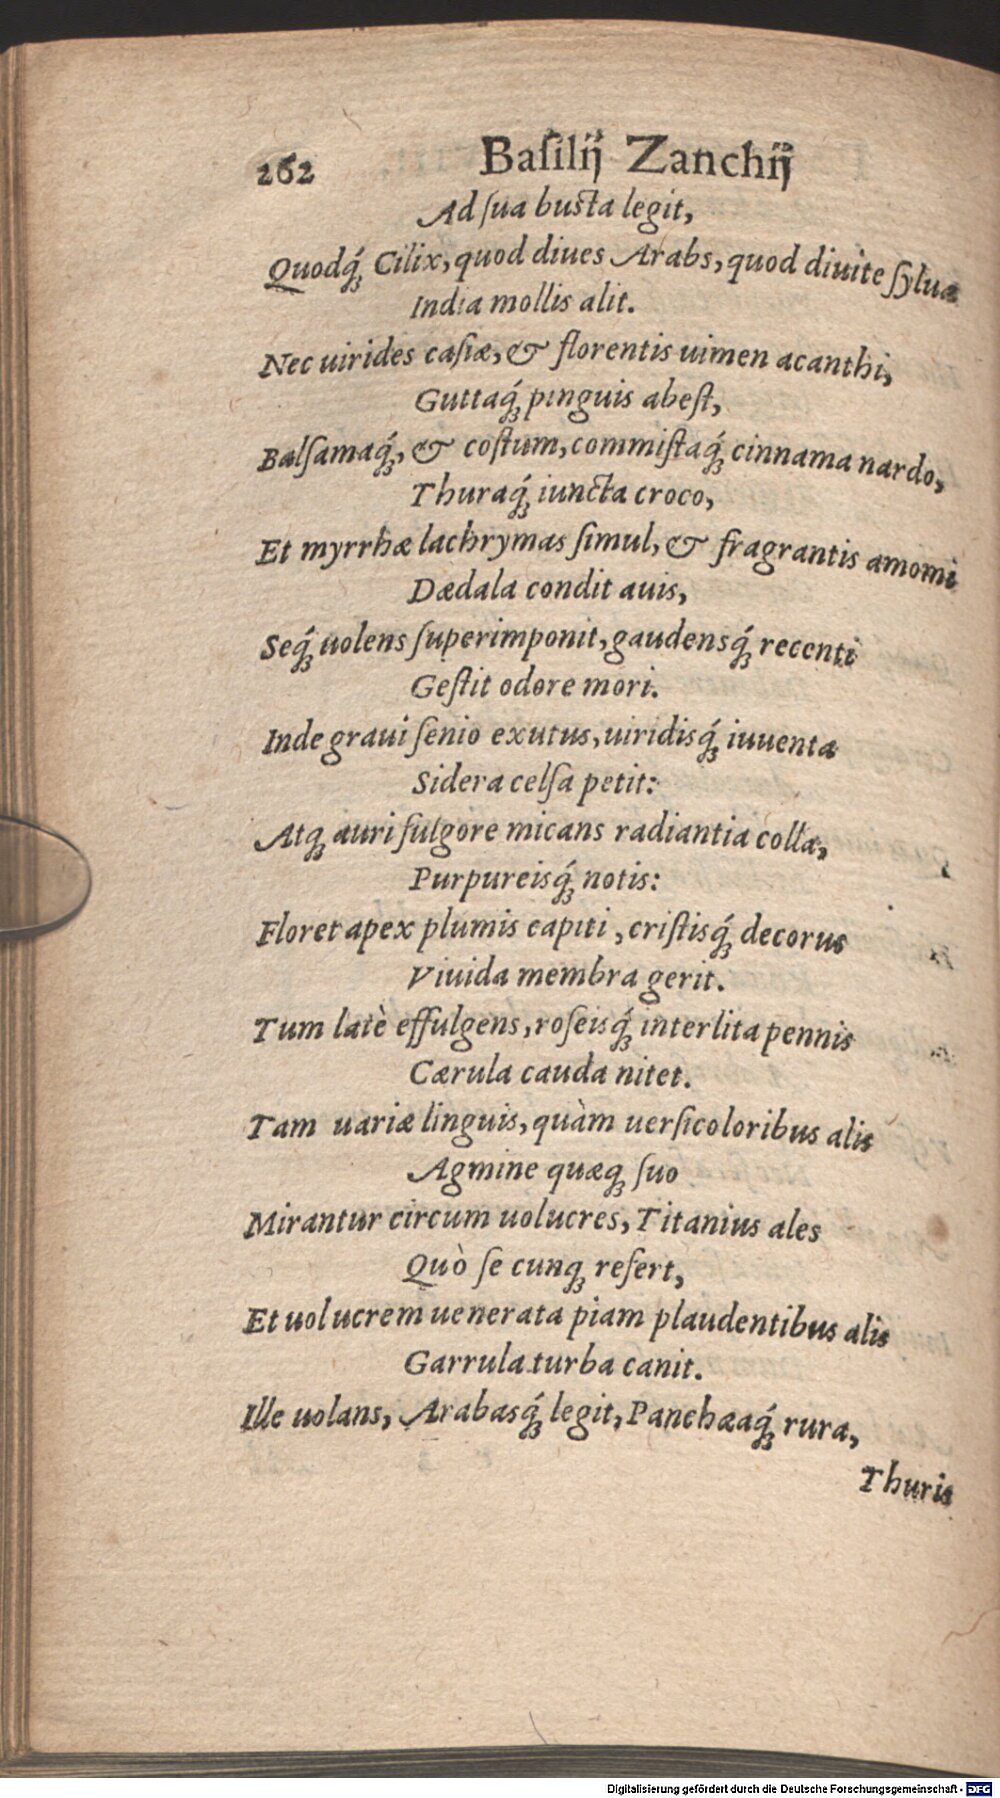 262 Baſilij Zanchij
Ad ſua busta legit,
Quodq́; Cilix, quod diues Arabs, quod diuite ſylua
India mollis alit.
Nec uirides caſiæ, & florentis uimen acanthi,
Guttaq́; pinguis abeſt,
Balſamaq́;, & coſtum, commiſtaq́; cinnama nardo,
Thuraq́; iuncta croco,
Et myrrhæ lachrymas ſimul, & fragrantis amomi
Dædala condit auis,
Seq́; uolens ſuperimponit, gaudensq́; recenti
Geſtit odore mori.
Inde graui ſenio exutus, uiridisq́; iuuenta
Sidera celſa petit:
Atq; auri fulgore micans radiantia colla,
Purpureisq́; notis:
Floret apex plumis capiti, criſtisq́; decorus
Viuida membra gerit.
Tum latè effulgens, roſeisq́; interlita pennis
Cærula cauda nitet.
Tam uariæ linguis, quàm uerſicoloribus alis
Agmine quæq; ſuo
Mirantur circum uolucres, Titanius ales
Quò ſe cunq; refert,
Et uolucrem uenerata piam plaudentibus alis
Garrula turba canit.
Ille uolans, Arabasq́; legit, Panchæaq́; rura,
Thuris
Digitalisierung gefördert durch die Deutsche Forschungsgemeinschaft - DFG